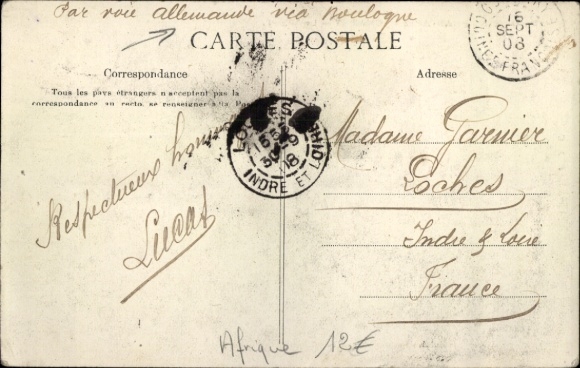 Par voie allemande via Boulogne
CARTE POSTALE
Correspondance
Adresse
Tous les pays étrangers n'acceptent pas la
correspondance au recto, se renseigner à la
16
SEPT
08
LOCHES
15
30 9
08
INDRE ET LOIRE
Respectueux
Lucas
Madame Garnier
Loches
Indre & Loire
France
Afrique 12€